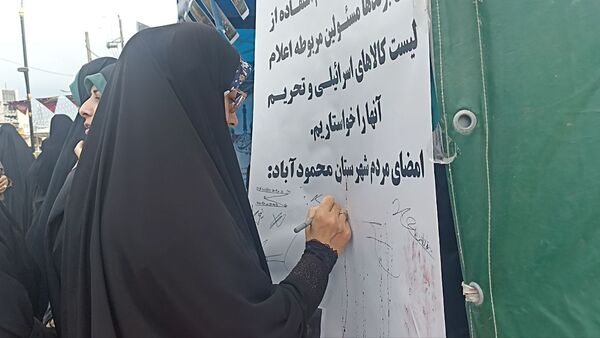 استفاده از
مسئولین مربوطه اعلام
لیست کالاهای اسرائیلی و تحریم
آنها را خواستاریم.
امضای مردم شهرستان محمودآباد: